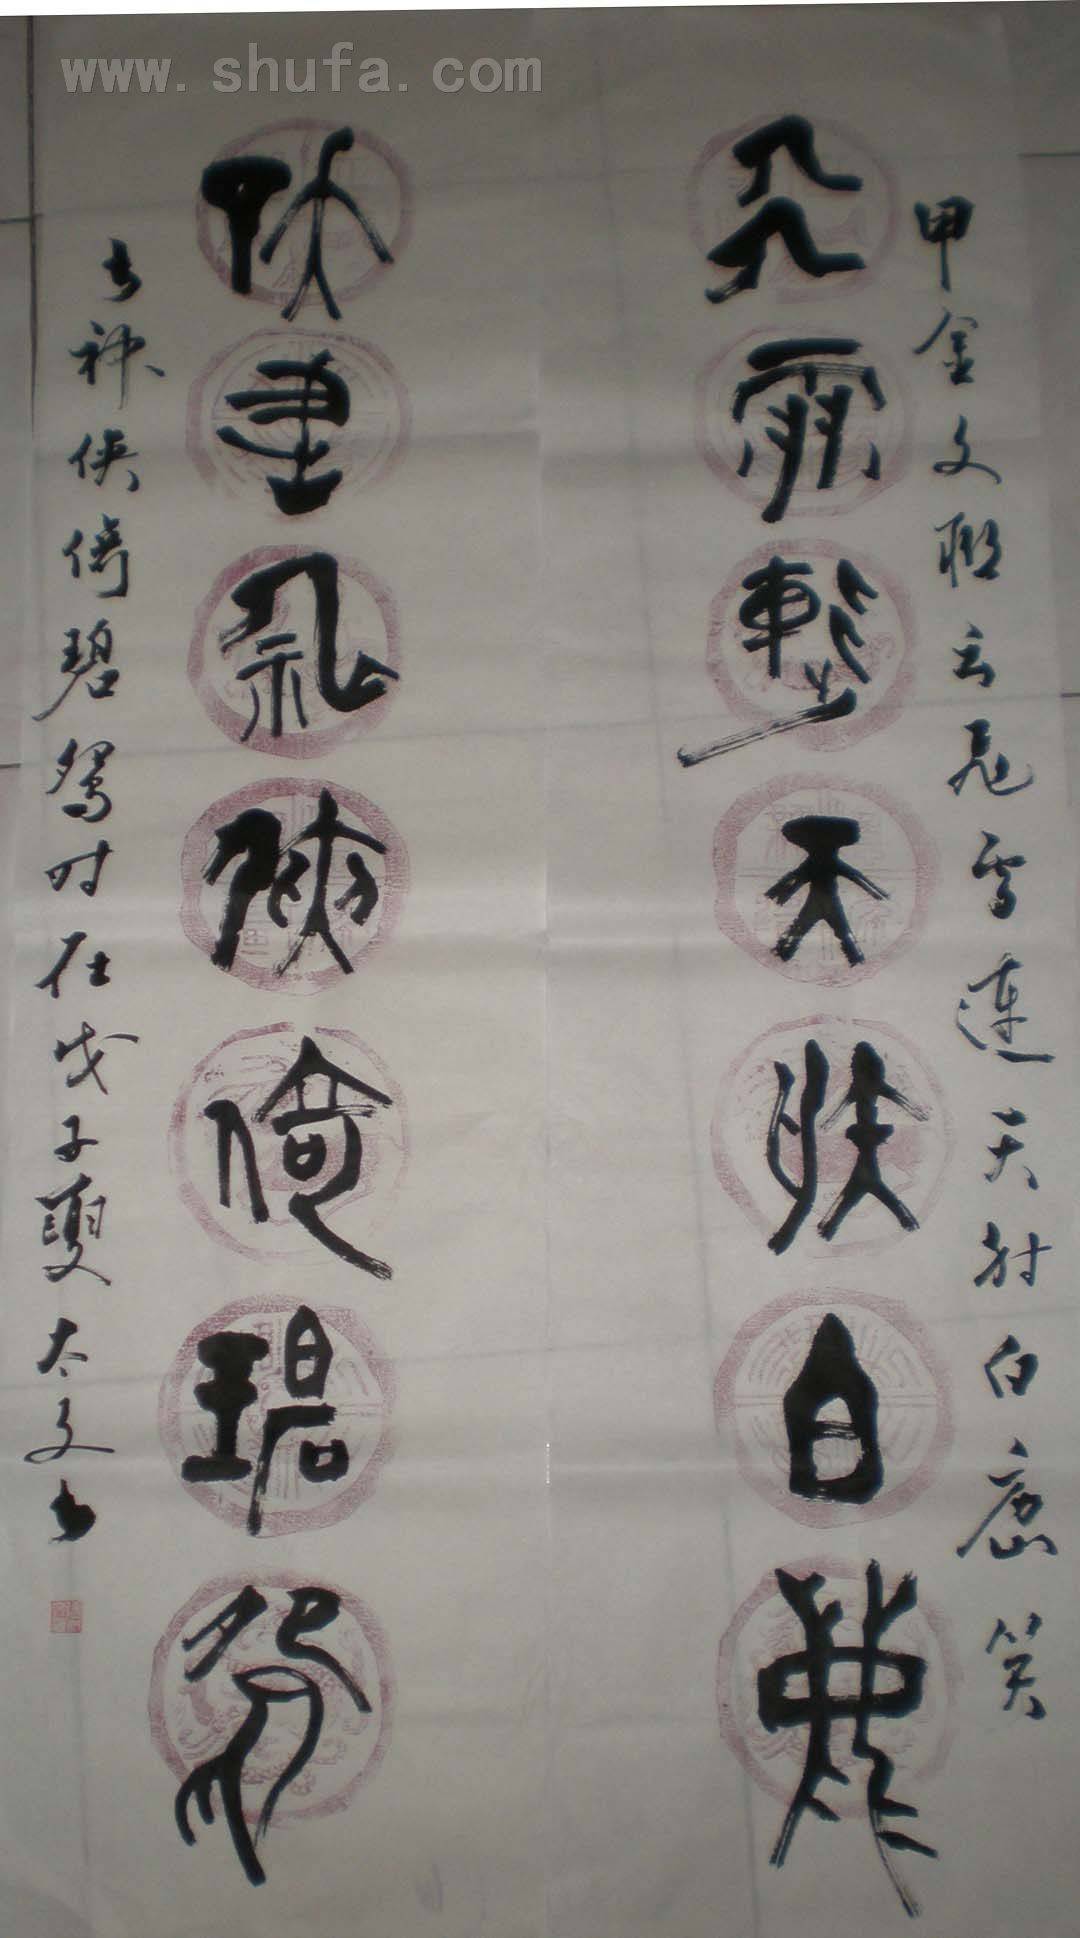 www.shufa.com
甲金文联云飞雪连天射白鹿笑
飞雪连天射白鹿
笑书神侠倚碧鸳
书神侠倚碧鸳时在戊子夏太文书